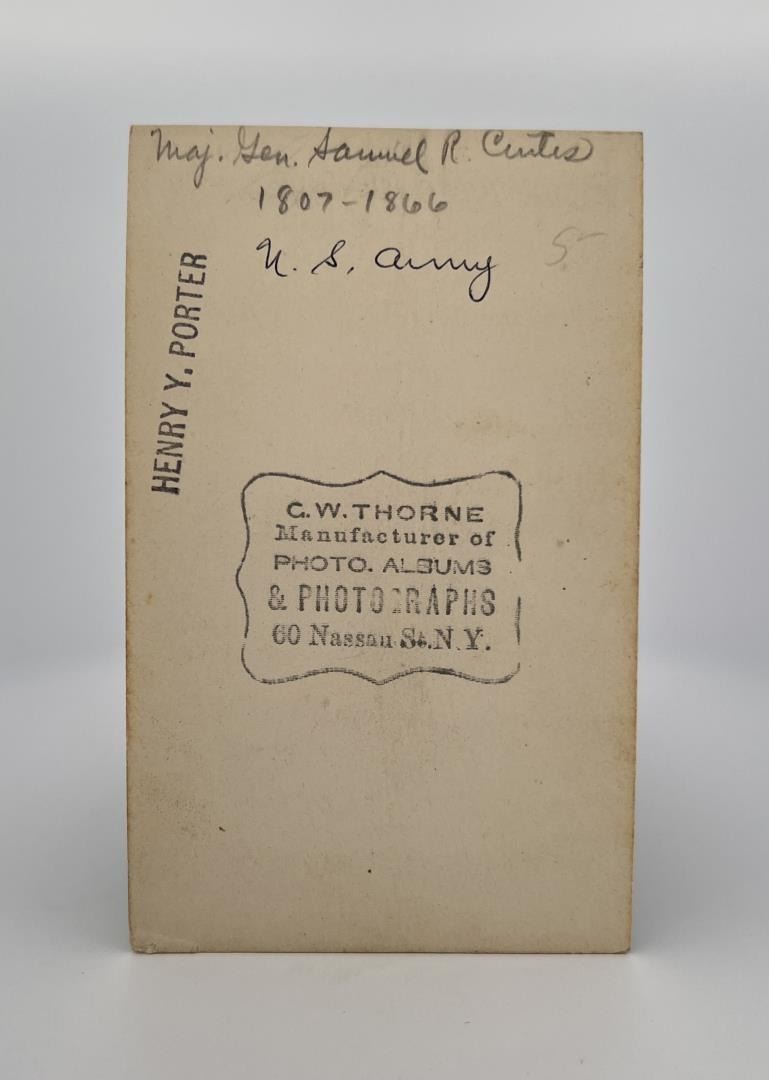 Maj. Gen. Samuel R. Curtis
1807-1866
U. S. Army
5
HENRY Y. PORTER
G. W. THORNE
Manufacturer of
PHOTO. ALBUMS
& PHOTOGRAPHS
60 Nassau St. N.Y.